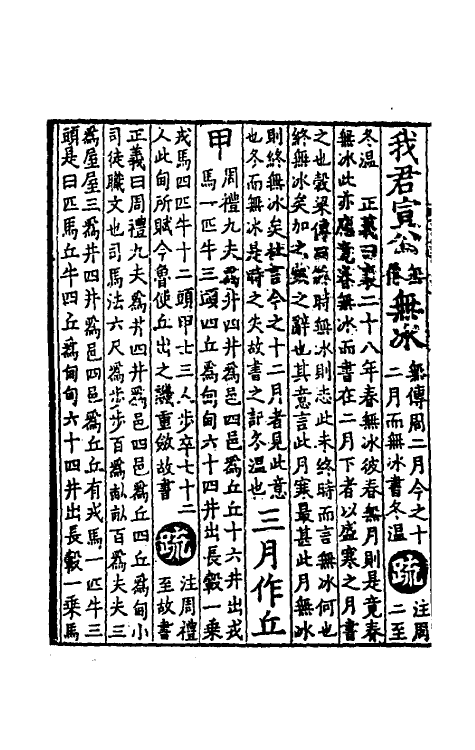 我君宣公無傳無冰無傳周二月今之十二月而無冰書冬溫疏注周二至
冬溫　正義曰襄二十八年春無冰彼春無月則是竟春無冰此亦應竟春無冰而書在二月下者以盛寒之月書
之也穀梁傳曰終時無冰則志此未終時而言無冰何也終無冰矣加之寒之辭也其意言此月寒最甚此月無冰
則終無冰矣杜言今之十二月者見此意也冬而無冰是時之失故書之記冬溫也三月作丘
甲周禮九夫爲井四井爲邑四邑爲丘丘十六井出戎馬一匹牛三頭四丘爲甸甸六十四井出長轂一乘
戎馬四匹牛十二頭甲士三人步卒七十二人此甸所賦今魯使丘出之譏重斂故書疏注周禮至故書
正義曰周禮九夫爲井四井爲邑四邑爲丘四丘爲甸小司徒職文也司馬法六尺爲步步百爲畝畝百爲夫夫三
爲屋屋三爲井四井爲邑四邑爲丘丘有戎馬一匹牛三頭是曰匹馬丘牛四丘爲甸甸六十四井出長轂一乘馬